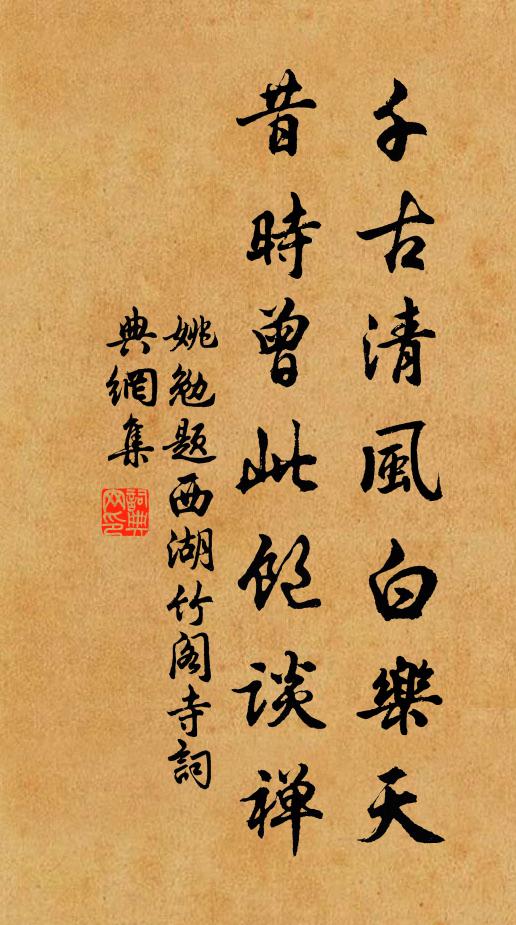 千古清風白樂天
昔時曾此飽談禅
姚勉题西湖竹阁寺詞
典網集
詞典
网印